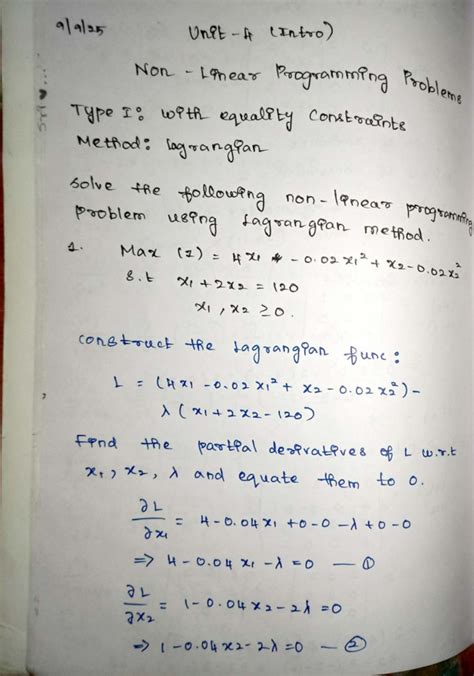 9/9/25
Unit-4 (Intro)
Non-Linear Programming Problems
Type I: with equality Constraints
Method: lagrangian
Solve the following non-linear programming
problem using lagrangian method.
1. Max (Z) = 4x1 - 0.02x1² + x2 - 0.02x2²
S.t x1 + 2x2 = 120
x1, x2 ≥ 0.
Construct the lagrangian func:
L = (4x1 - 0.02x1² + x2 - 0.02x2²) -
λ(x1 + 2x2 - 120)
Find the partial derivatives of L w.r.t
x1, x2, λ and equate them to 0.
∂L/∂x1 = 4 - 0.04x1 + 0 - 0 - λ + 0 - 0
=> 4 - 0.04x1 - λ = 0 — ①
∂L/∂x2 = 1 - 0.04x2 - 2λ = 0
=> 1 - 0.04x2 - 2λ = 0 — ②